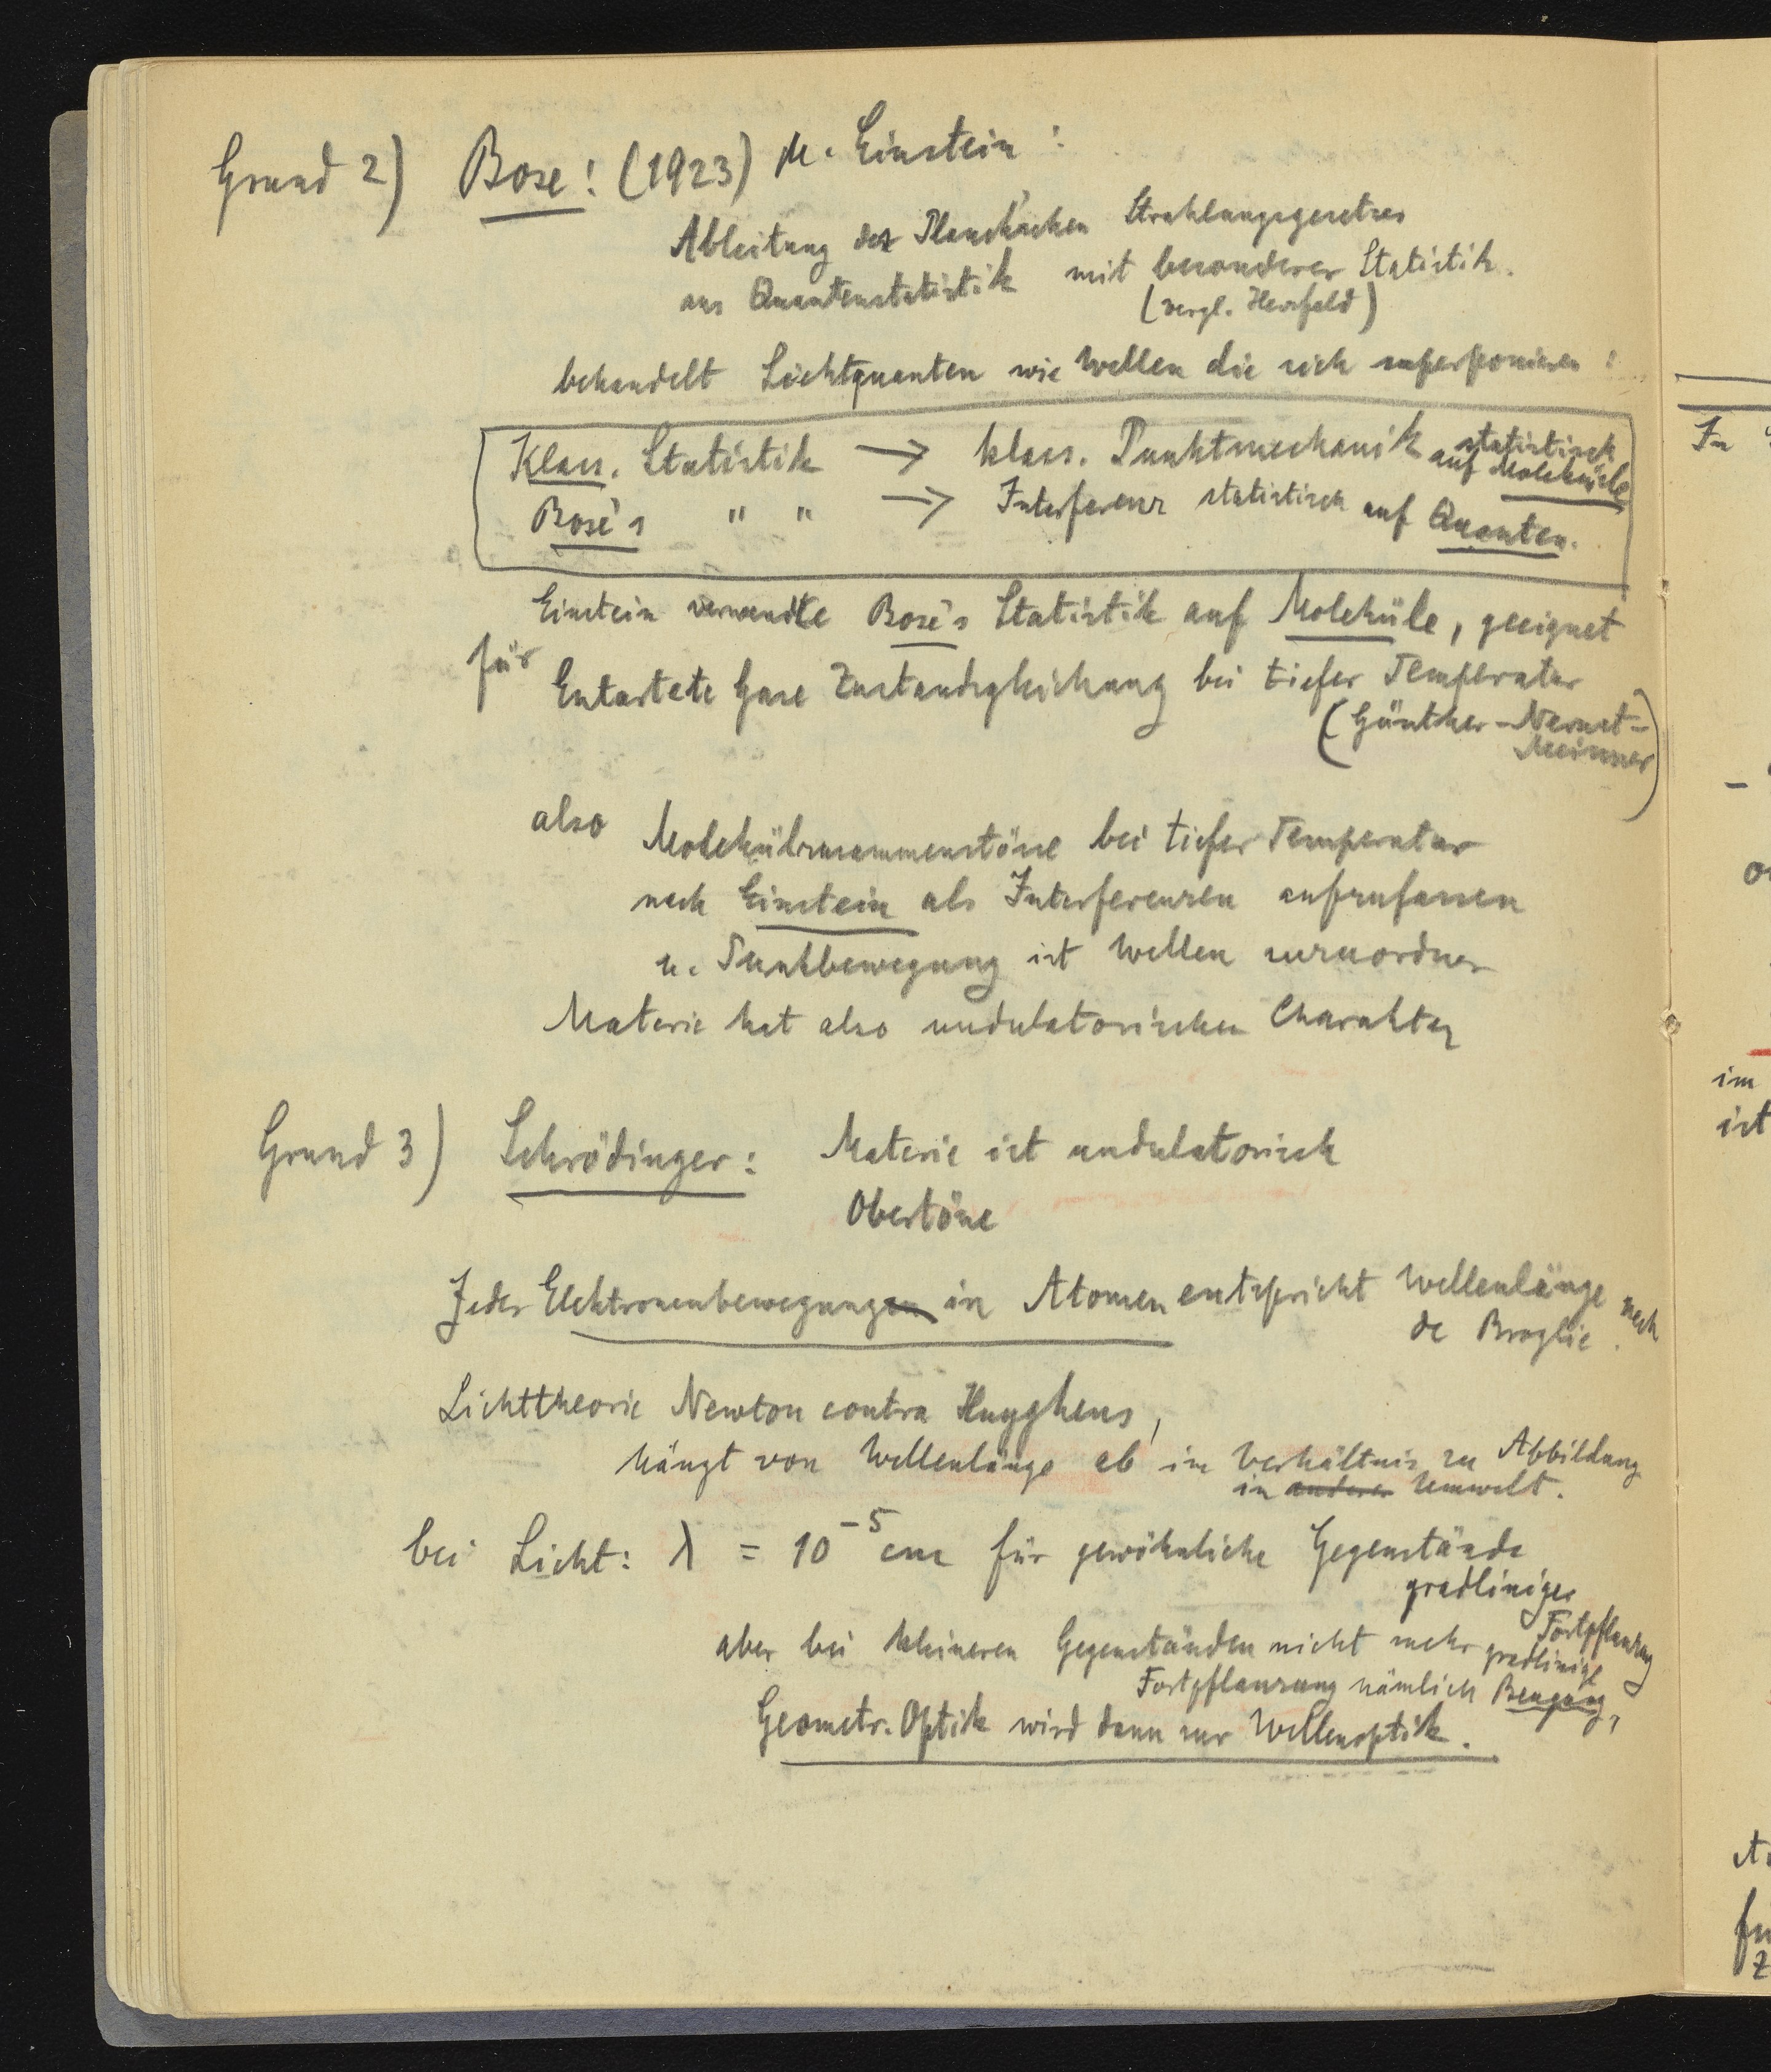 Grund 2) Bose! (1923) u. Einstein:
Ableitung des Planck'schen Strahlungsgesetzes
aus Quantenstatistik mit besonderer Statistik.
(vergl. Herzfeld)
behandelt Lichtquanten wie Wellen die sich superponieren:
Klass. Statistik → klass. Punktmechanik statistisch
auf Moleküle
Bose's " " → Interferenz statistisch auf Quanten.
Einstein verwendte Bose's Statistik auf Moleküle, geeignet
für Entartete Gase Zustandsgleichung bei tiefer Temperatur
(Günther-Nernst-
Meissner)
also Molekülzusammenstösse bei tiefer Temperatur
nach Einstein als Interferenzen aufzufassen
u. Punktbewegung ist Wellen zuzuordnen
Materie hat also undulatorischen Charakter
Grund 3) Schrödinger: Materie ist undulatorisch
Obertöne
Jeder Elektronenbewegungen in Atomen entspricht Wellenlänge nach
de Broglie.
Lichttheorie Newton contra Huyghens,
hängt von Wellenlänge ab im Verhältnis zu Abbildung
in anderer Umwelt.
bei Licht: λ = 10⁻⁵ cm für gewöhnliche Gegenstände
gradlinige
Fortpflanzung
aber bei kleineren Gegenständen nicht mehr gradlinige
Fortpflanzung nämlich Beugung,
Geometr. Optik wird dann zur Wellenoptik.
In
im
ist